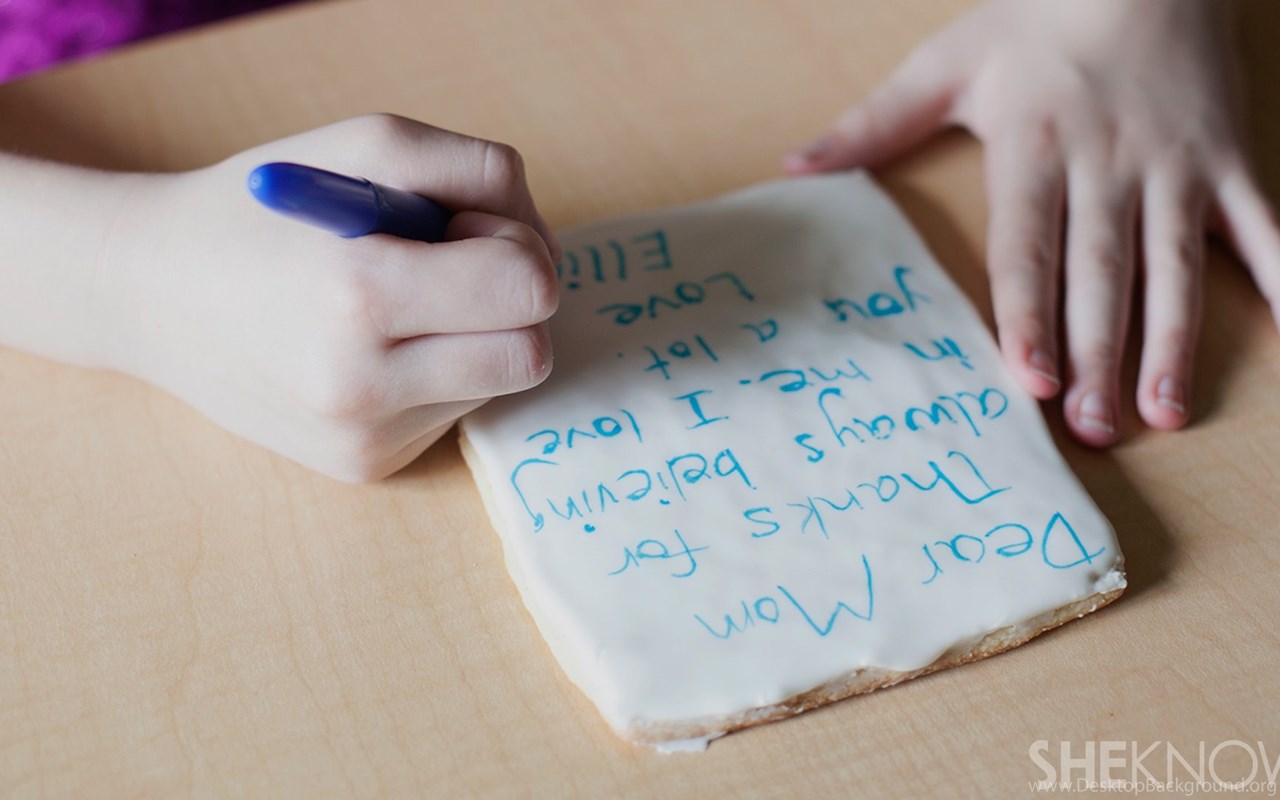 Dear Mom
Thanks for
always believing
in me. I love
you a lot.
Love
Elli
SHEKNOW
www.DesktopBackground.org